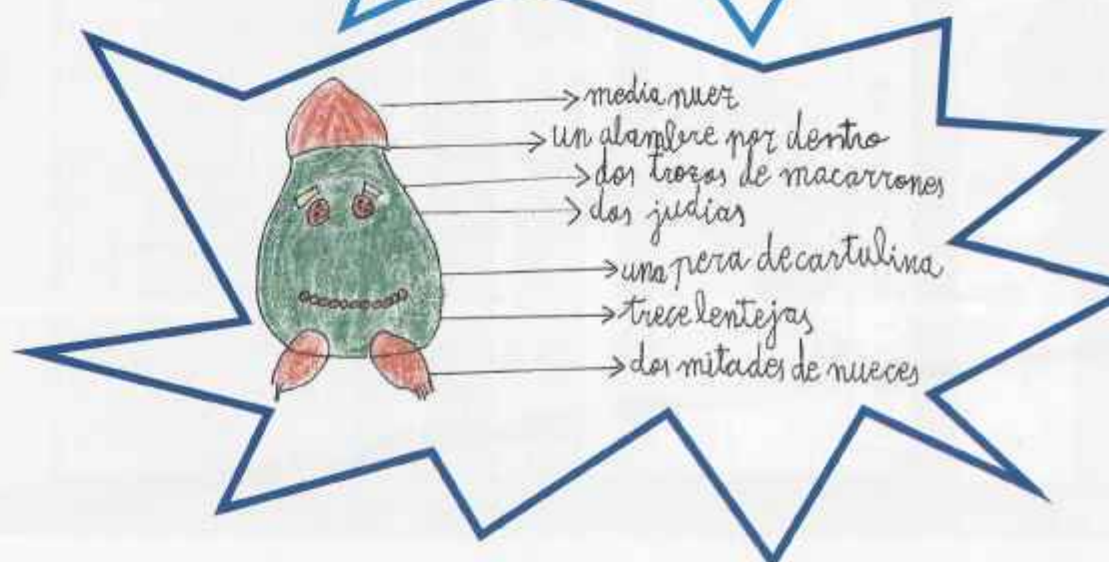 media nuez
un alambre por dentro
dos trozos de macarrones
dos judías
una pera de cartulina
trece lentejas
dos mitades de nueces